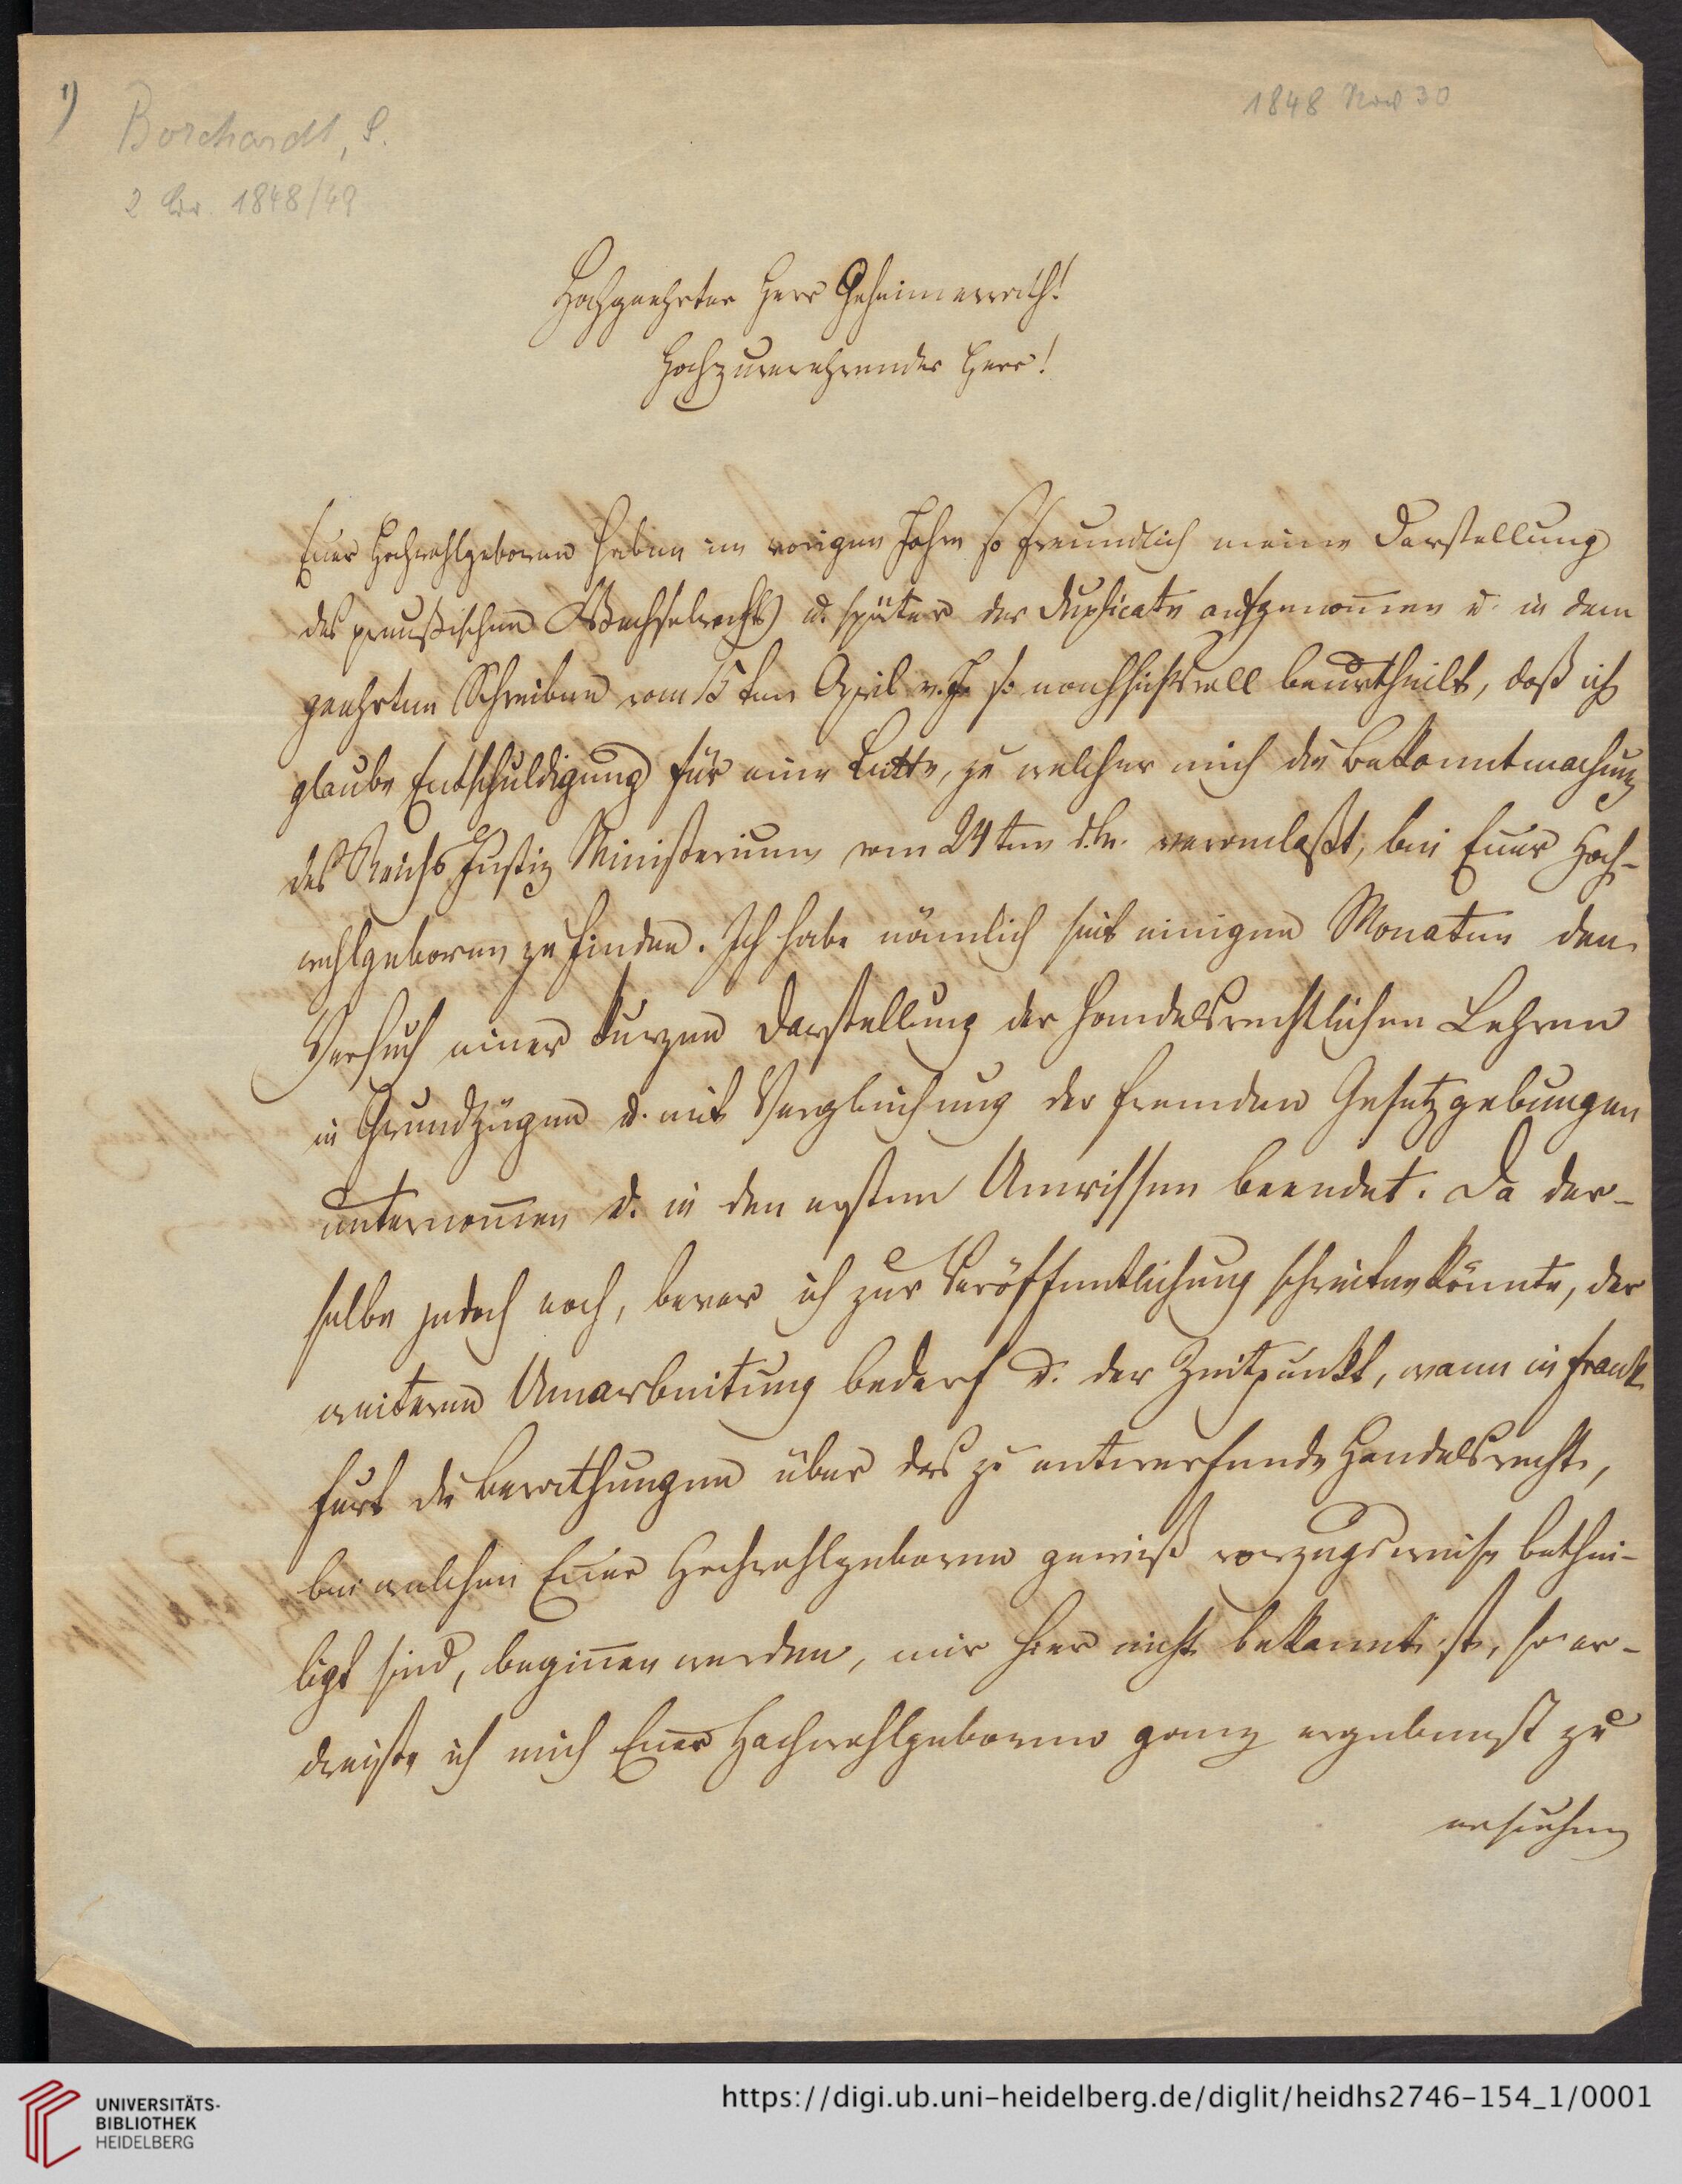 1)
Borchardt, S.
2 Br. 1848/49
1848 Nov 30
Hochgeehrter Herr Geheimerrath!
Hochzuverehrender Herr!
Euer Hochwohlgeboren haben im vorigen Jahre so freundlich meine Darstellung
des preußischen Wechselrechts u. später der Duplicate aufgenom̅en u. in dem
geehrten Schreiben vom 15ten April v. J. so nachsichtsvoll beurtheilt, daß ich
glaube Entschuldigung für eine Bitte, zu welcher mich die Bekanntmachung
des Reichs Justiz Ministeriums vom 24ten d. M. veranlaßt, bei Euer Hoch-
wohlgeboren zu finden. Ich habe nämlich seit einigen Monaten den
Versuch einer kurzen Darstellung der handelsrechtlichen Lehren
in Grundzügen u. mit Vergleichung der fremden Gesetzgebungen
unternom̅en u. in den ersten Umrissen beendet. Da der-
selbe jedoch noch, bevor ich zur Veröffentlichung schreiten könnte, der
weiteren Umarbeitung bedarf u. der Zeitpunkt, wann in Frank-
furt die Berathungen über das zu entwerfende Handelsrecht,
bei welchen Euer Hochwohlgeboren gewiß vorzugsweise bethei-
ligt sind, begin̅en werden, mir hier nicht bekannt ist, so er-
dreiste ich mich Euer Hochwohlgeboren ganz ergebenst zu
ersuchen
UNIVERSITÄTS-
BIBLIOTHEK
HEIDELBERG
https://digi.ub.uni-heidelberg.de/diglit/heidhs2746-154_1/0001